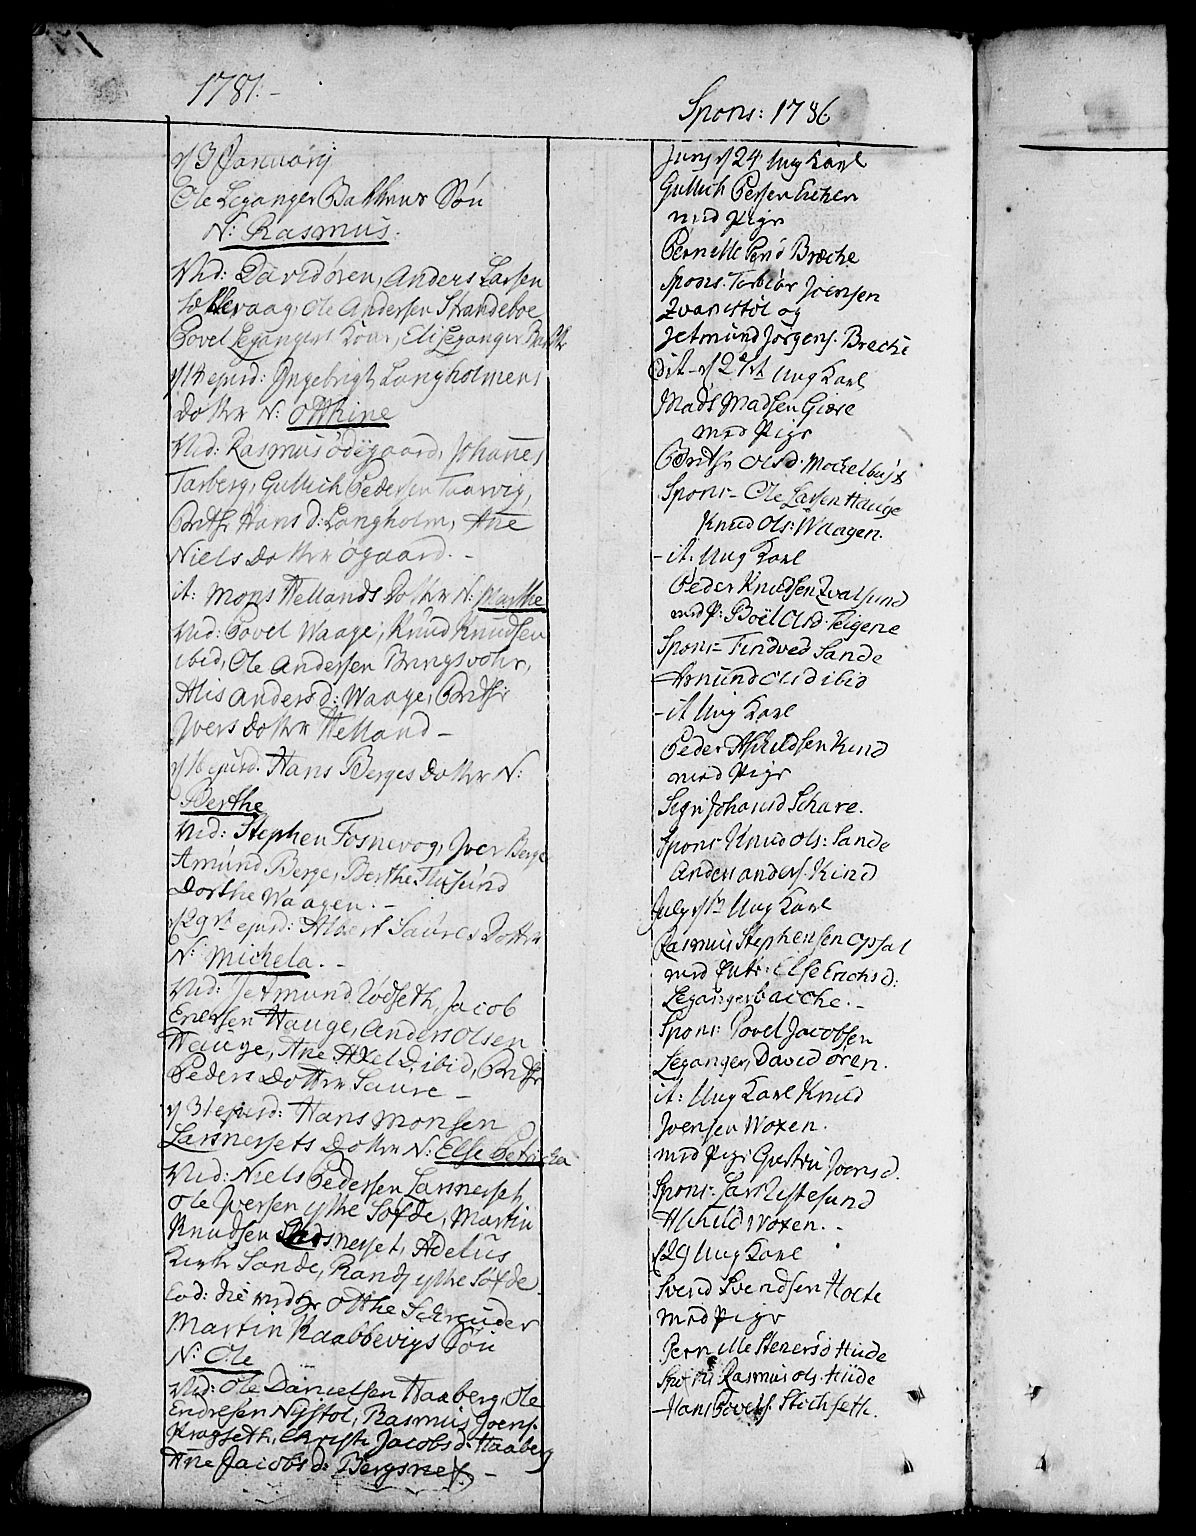 1781.-
d 3 Januarij
Ole Leganger Bakkens Søn
N: Rasmus.
Vid: David Øren, Anders Larsen
vaag, Ole Andersen Strandeboe
Povel Legangers Kone, Eli Leganger
d 14 ejusd: Ingebrigt Langholmens
Dotter N: Otthine
Vid: Rasmus Ødegaard, Johannes
Tarberg, Gullich Pedersen Taarvig,
Brithe Hans D: Langholm, Ane
Niels Dotter Øgaard.-
it: Mons Hellands Dotter N: Marthe
Vid: Povel Waage, Knud Knudsen
ibid, Ole Andersen
Alis Anders d: Waage, Brithe
Ivers Dotter Helland-
d 16 ejusd. Hans Berges Dotter N:
Berthe
Vid: Stephen Fosnevog, Iver Berge
Amund Berge, Berthe Flusund
Dorthe Waagen.-
d 29th ejusd: Albert Saures Dotter
N: Michela.-
Vid: Jetmund Rødseth, Jacob
Hauge, Anders Olsen
Hauge, Ane Axel D. ibid, Brithe
Peders Dotter Saure-
d 31 ejusd: Hans Monsen
Larsnessets Dotter N: Else Petricha
Vid: Niels Pedersen Larsnesset,
Ole Iversen ytre Søfde, Martin
Knudsen Larsnesset, Adelus
Sande, Randj ytre Søfde
Eod: die Otthe Schreuder
Martin Kaabbevigs Søn
N: Ole
Vid: Ole Danielsen Haaberg, Ole
Endresen Nystøl, Rasmus Joens.
Kragseth, Christi Jacobs d: Haaberg
Ane Jacobs d: Bergsnef.-
Spons: 1786
Junj d 24 Ung Karl
Gullich Persen
med Pige
Pernelle Brecke
Spons. Torbiør Joensen
og
Jetmund Jørgens. Brecke
dit- d Ung Karl
Mads Madsen Giære
med Pige
Brithe Ols D.
Spons- Ole Larsen Hauge
Knud Ols: Waagen.
-it. Ung Karl
Peder Knudsen Qvalsund
med P: Boel Olsd. Teigene
Spons- Findved Sande
Amund Olsd ibid
-it Ung Karl
Peder Kind
med Pige
Segri Johansd Schare.
Spons- Knud Ols: Sande
Anders anders. Kind
July d 1 Ung Karl
Rasmus Stephensen Opsal
med Enke: Else Erichsd:
Legangerbacke.-
Spons: Povel Jacobsen
Leganger, David Øren.
it: Ung Karl Knud
Joensen Woxen.
med Pige Joensd.
Spons- Lars Ristesund
Woxen.-
d 29 Ung Karl
Svend Svendsen Holte
med Pige
Pernelle Stenersd Hiide
Spons Rasmus Ols. Hiide
-Hans Povels. Stichseth.